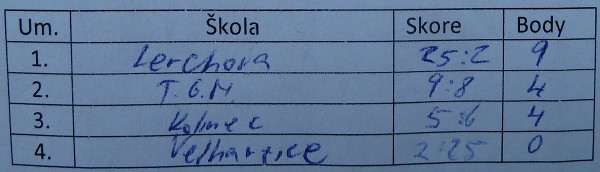 Um. Škola Skore Body
1. Lerchova 25:2 9
2. T.G.M. 9:8 4
3. Kolinec 5:6 4
4. Velhartice 2:25 0